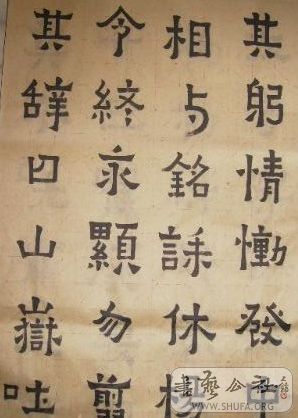 其躬情慟發
相与銘誄休
令終永顯勿翦
其辭曰山嶽吐
書藝公社
WWW.SHUFA.ORG